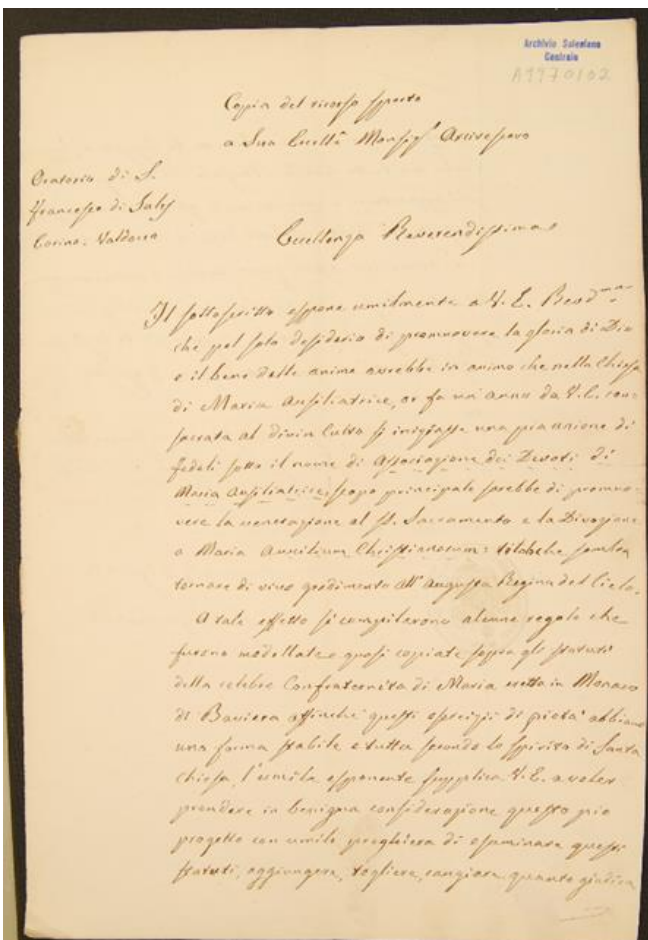 Archivio Salesiano
Centrale
A1970102
Copia del ricorso sporto
a Sua Eccell. Monsig. Arcivescovo
Oratorio di S.
Francesco di Sales
Torino. Valdocco
Eccellenza Reverendissima
Il sottoscritto espone umilmente a V. E. Revd.ma
che pel solo desiderio di promuovere la gloria di Dio
e il bene delle anime avrebbe in animo che nella Chiesa
di Maria Ausiliatrice, or fa un anno da V. E. con-
sacrata al divin Culto si iniziasse una pia unione di
fedeli sotto il nome di Associazione dei Devoti di
Maria Ausiliatrice: scopo principale sarebbe di promuo-
vere la venerazione al SS. Sacramento e la Divozione
a Maria Auxilium Christianorum: titolo che sembra
tornare di vivo gradimento all'Augusta Regina del Cielo.
A tale effetto si compilerono alcune regole che
furono modellate e quasi copiate sopra gli statuti
della celebre Confraternita di Maria eretta in Monaco
di Baviera affinchè questi esercizi di pietà abbiano
una forma stabile e tutta secondo lo spirito di Santa
Chiesa, l'umile esponente supplica V. E. a voler
prendere in benigna considerazione questo pio
progetto con umile preghiera di esaminare questi
statuti, aggiungere, togliere, cangiare quanto giudica